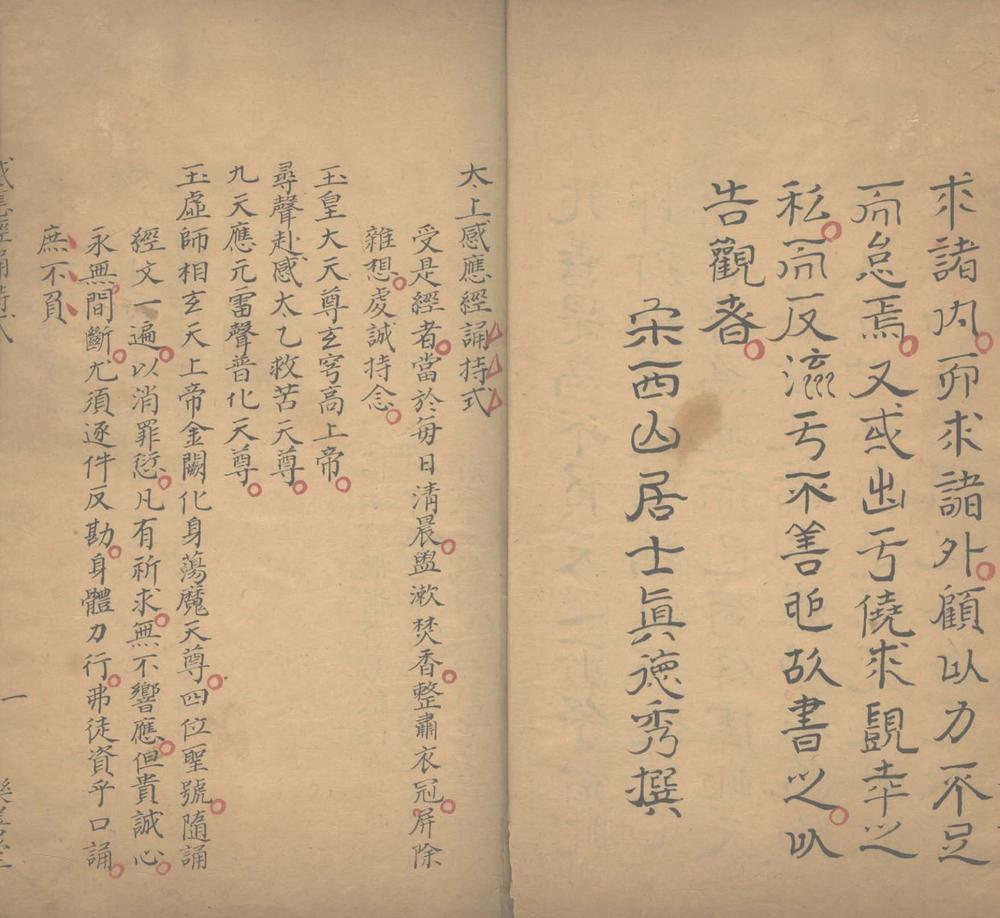 求諸內而求諸外顧以力不足
而怠焉又或出于僥求覬幸之
私而反流于不善耶故書之以
告觀者
宋西山居士眞德秀撰
太上感應經誦持式
受是經者當於每日清晨盥漱焚香整肅衣冠屏除
雜想虔誠持念
玉皇大天尊玄穹高上帝
尋聲赴感太乙救苦天尊
九天應元雷聲普化天尊
玉虛師相玄天上帝金闕化身蕩魔天尊四位聖號隨誦
經文一遍以消罪愆凡有祈求無不響應但貴誠心
永無間斷尤須逐件反勘身體力行弗徒資乎口誦
庶不負
感應經誦持式
一